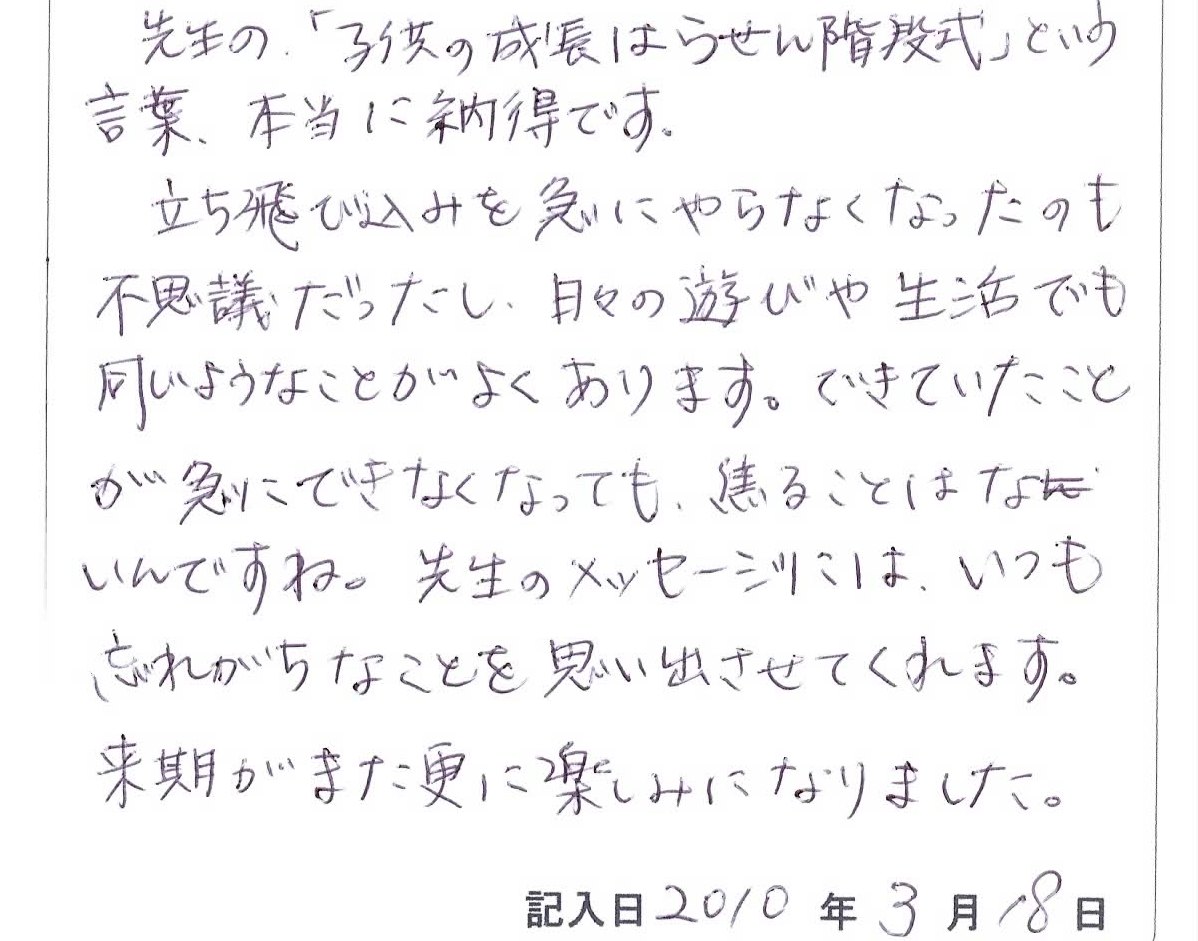 先生の、「子供の成長はらせん階段式」という
言葉、本当に納得です。
立ち飛び込みを急にやらなくなったのも
不思議だったし、日々の遊びや生活でも
同じようなことがよくあります。できていたこと
が急にできなくなっても、焦ることはな
いんですね。先生のメッセージには、いつも
忘れがちなことを思い出させてくれます。
来期がまた更に楽しみになりました。
記入日2010年3月18日